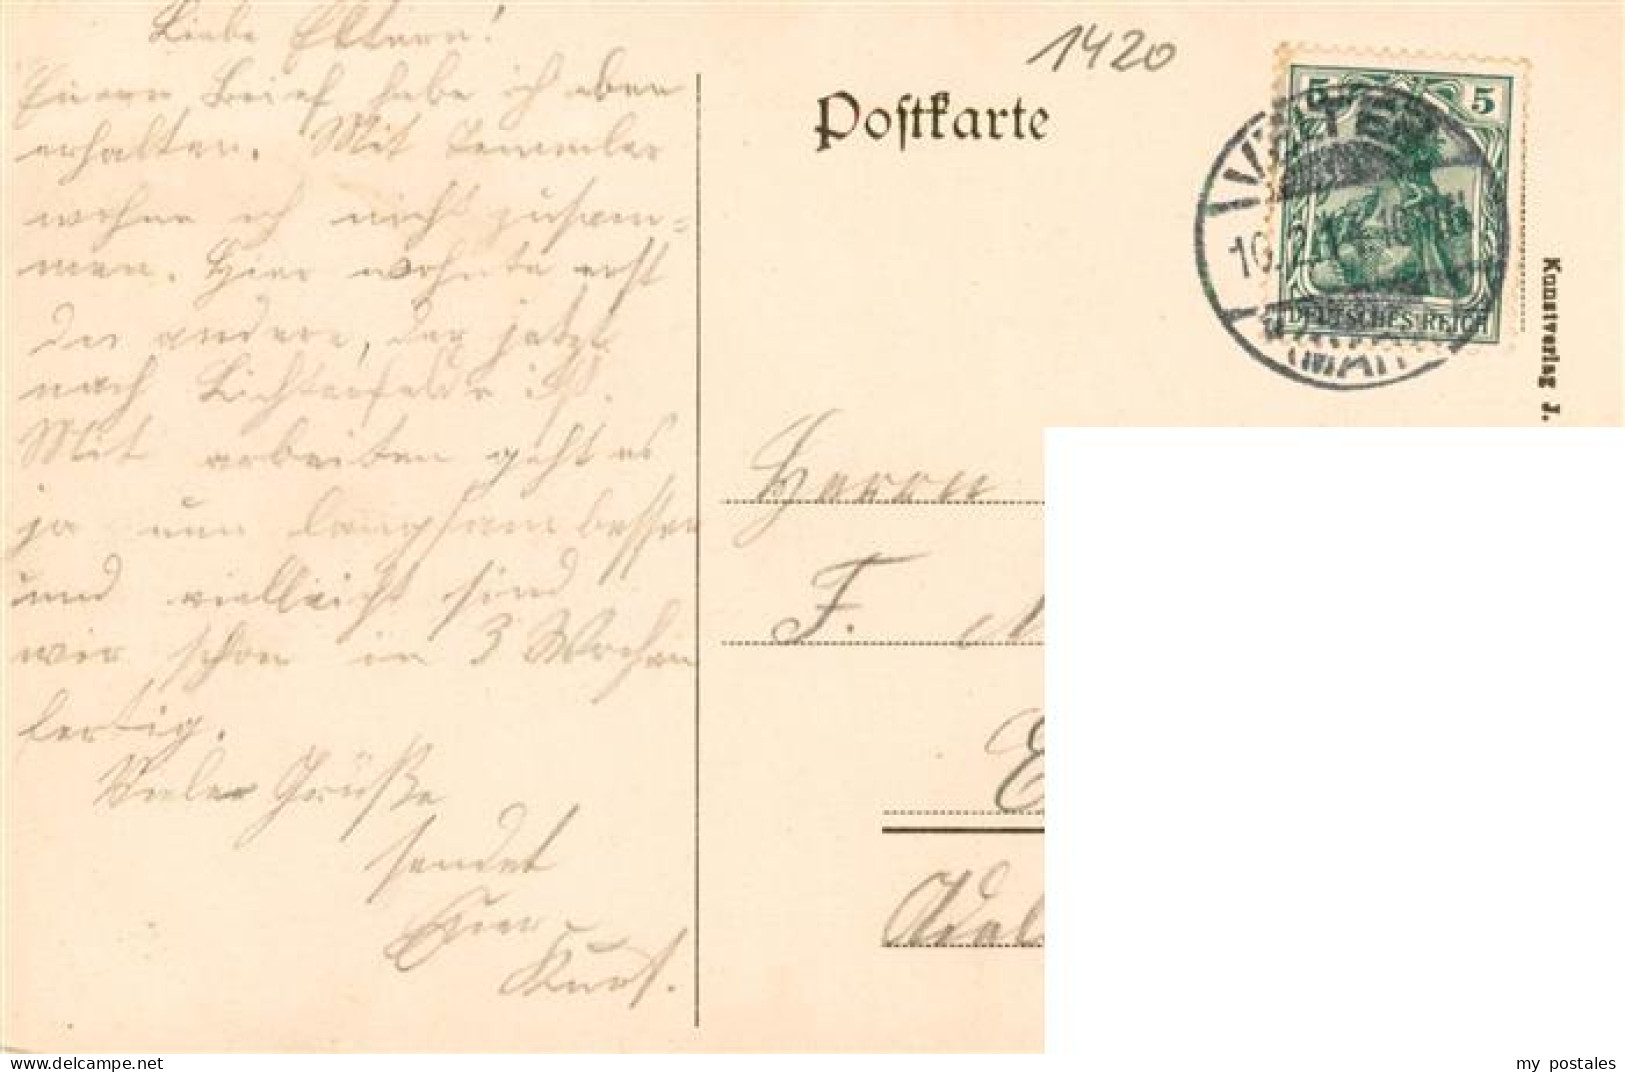 Liebe Eltern!
Euren Brief habe ich eben
erhalten. Mit Temmler
wohne ich nicht zusam=
men. Hier wohnte erst
der andere, der jetzt
nach Lichterfelde ist.
Mit arbeiten geht es
ja nun langsam besser
und vielleicht sind
wir schon in 3 Wochen
fertig.
Viele Grüße
sendet
Euer
Kurt.
1420
Postkarte
5 5
10.2.14
DEUTSCHES REICH
Kunstverlag J.
Herrn
F.
my_postales
www.delcampe.net